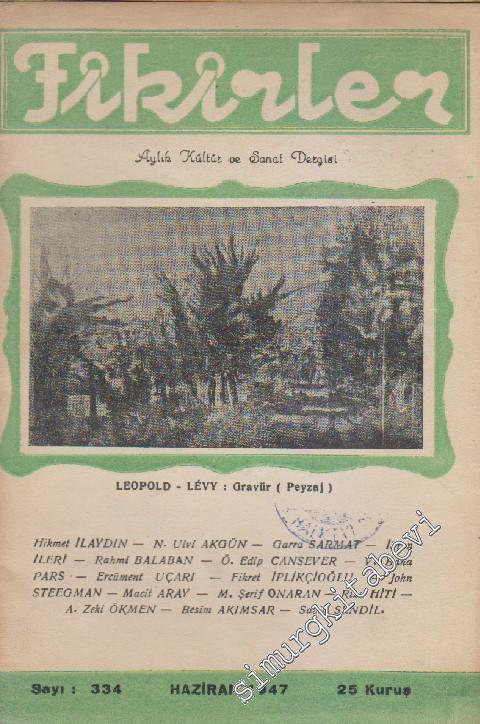 Fikirler
Aylık Kültür ve Sanat Dergisi
LEOPOLD - LÉVY : Gravür ( Peyzaj )
Hikmet İLAYDIN — N. Ulvi AKGÜN — Garra SARMAT —
İLERİ — Rahmi BALABAN — Ö. Edip CANSEVER —
PARS — Ercüment UÇARI — Fikret İPLİKÇİOĞLU — John
STEEGMAN — Macit ARAY — M. Şerif ONARAN — HİTİ —
A. Zeki ÖKMEN — Besim AKIMSAR — ŞENDİL.
Sayı : 334 HAZİRAN 947 25 Kuruş
simurgkitabevi